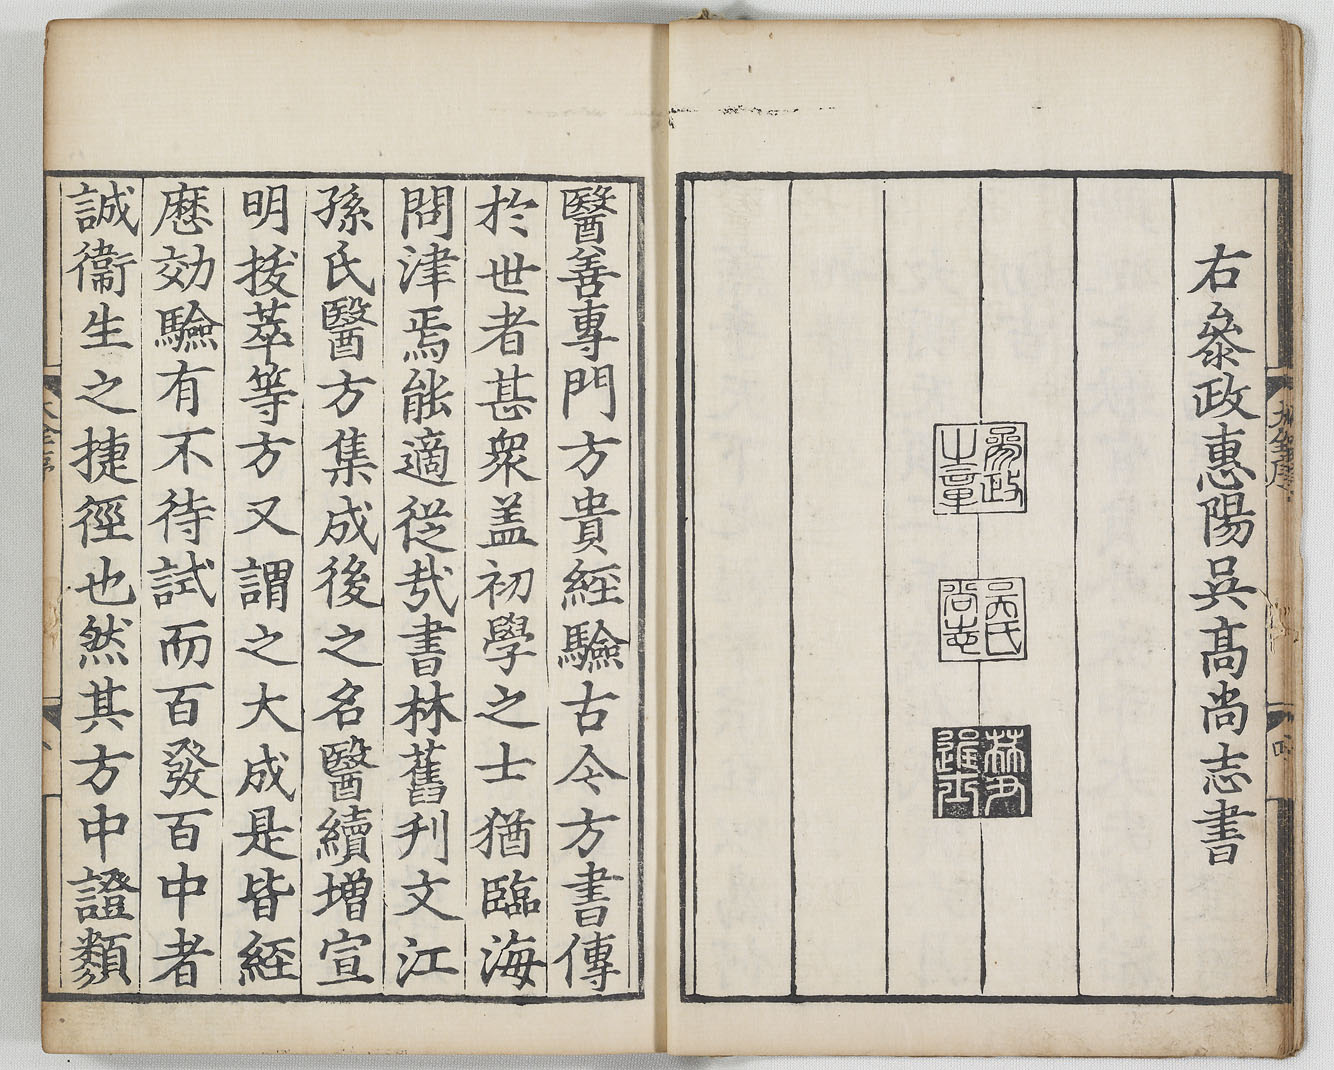 右叅政惠陽吳髙尚志書
叅政
之章
吳氏
尚志
進士
醫善專門方貴經驗古今方書傳
於世者甚衆盖初學之士猶臨海
問津焉能適從㢤書林舊刋文江
孫氏醫方集成後之名醫續增宣
明拔萃等方又謂之大成是皆經
歴効驗有不待試而百發百中者
誠衛生之捷徑也然其方中證類